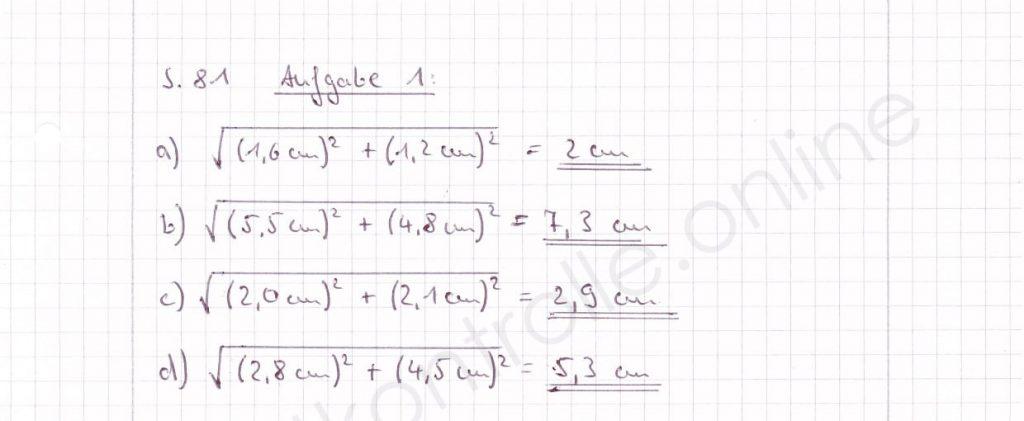 S. 81 Aufgabe 1:
a) √(1,6 cm)² + (1,2 cm)² = 2 cm
b) √(5,5 cm)² + (4,8 cm)² = 7,3 cm
c) √(2,0 cm)² + (2,1 cm)² = 2,9 cm
d) √(2,8 cm)² + (4,5 cm)² = 5,3 cm
kontrolle.online